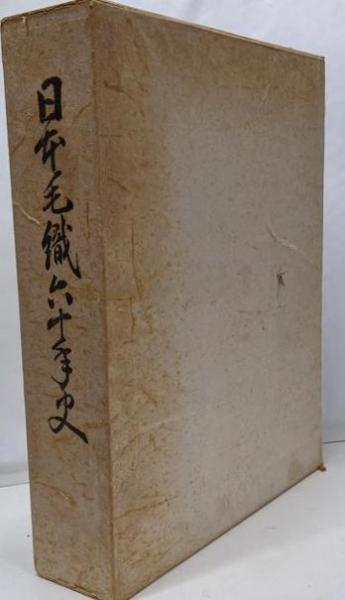 日本毛織六十年史